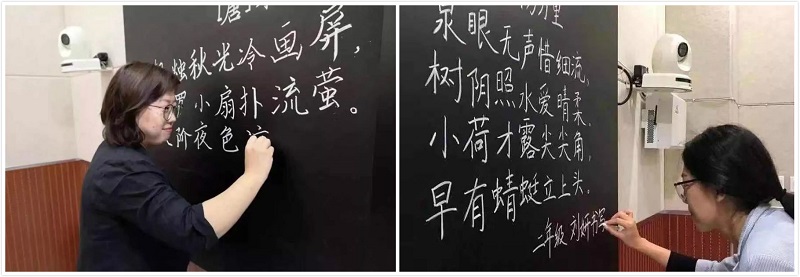 烛秋光冷画屏，
罗小扇扑流萤。
阶夜色
泉眼无声惜细流，
树阴照水爱晴柔，
小荷才露尖尖角，
早有蜻蜓立上头。
二年级 刘妍书写